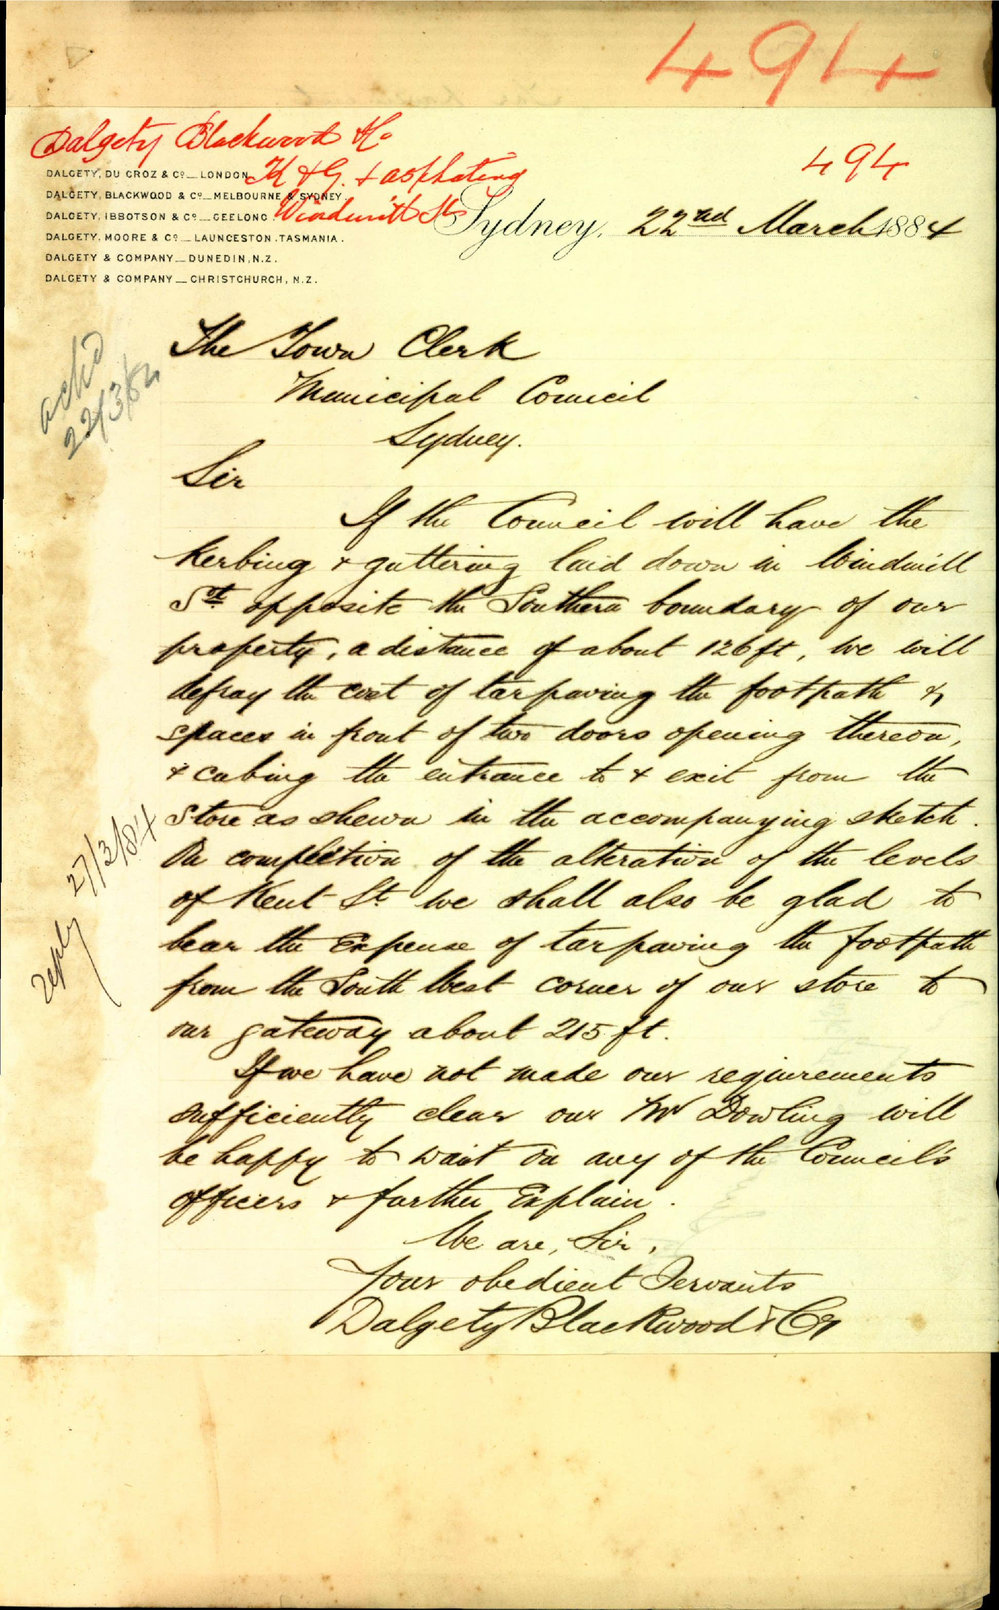 494
Dalgety Blackwood & Co
K & G. & asphalting
Windmill St
494
DALGETY, DU CROZ & Co — LONDON
DALGETY, BLACKWOOD & Co — MELBOURNE & SYDNEY.
DALGETY, IBBOTSON & Co — GEELONG
DALGETY, MOORE & Co — LAUNCESTON. TASMANIA.
DALGETY & COMPANY — DUNEDIN, N.Z.
DALGETY & COMPANY — CHRISTCHURCH, N.Z.
Sydney, 22nd March 1884
ackd
22/3/84
The Town Clerk
Municipal Council
Sydney.
Sir
If the Council will have the
kerbing & guttering laid down in Windmill
St. opposite the Southern boundary of our
property, a distance of about 126 ft, we will
defray the cost of tarpaving the footpath &
spaces in front of two doors opening thereon,
& cubing the entrance to & exit from the
Store as shewn in the accompanying sketch.
On completion of the alteration of the levels
of Kent St. we shall also be glad to
bear the Expense of tarpaving the footpath
from the South West corner of our store to
our gateway about 215 ft.
If we have not made our requirements
sufficiently clear our Mr Dowling will
be happy to wait on any of the Council's
officers & further Explain.
We are, Sir,
Your obedient Servants
Dalgety Blackwood & Co
reply 27/3/84